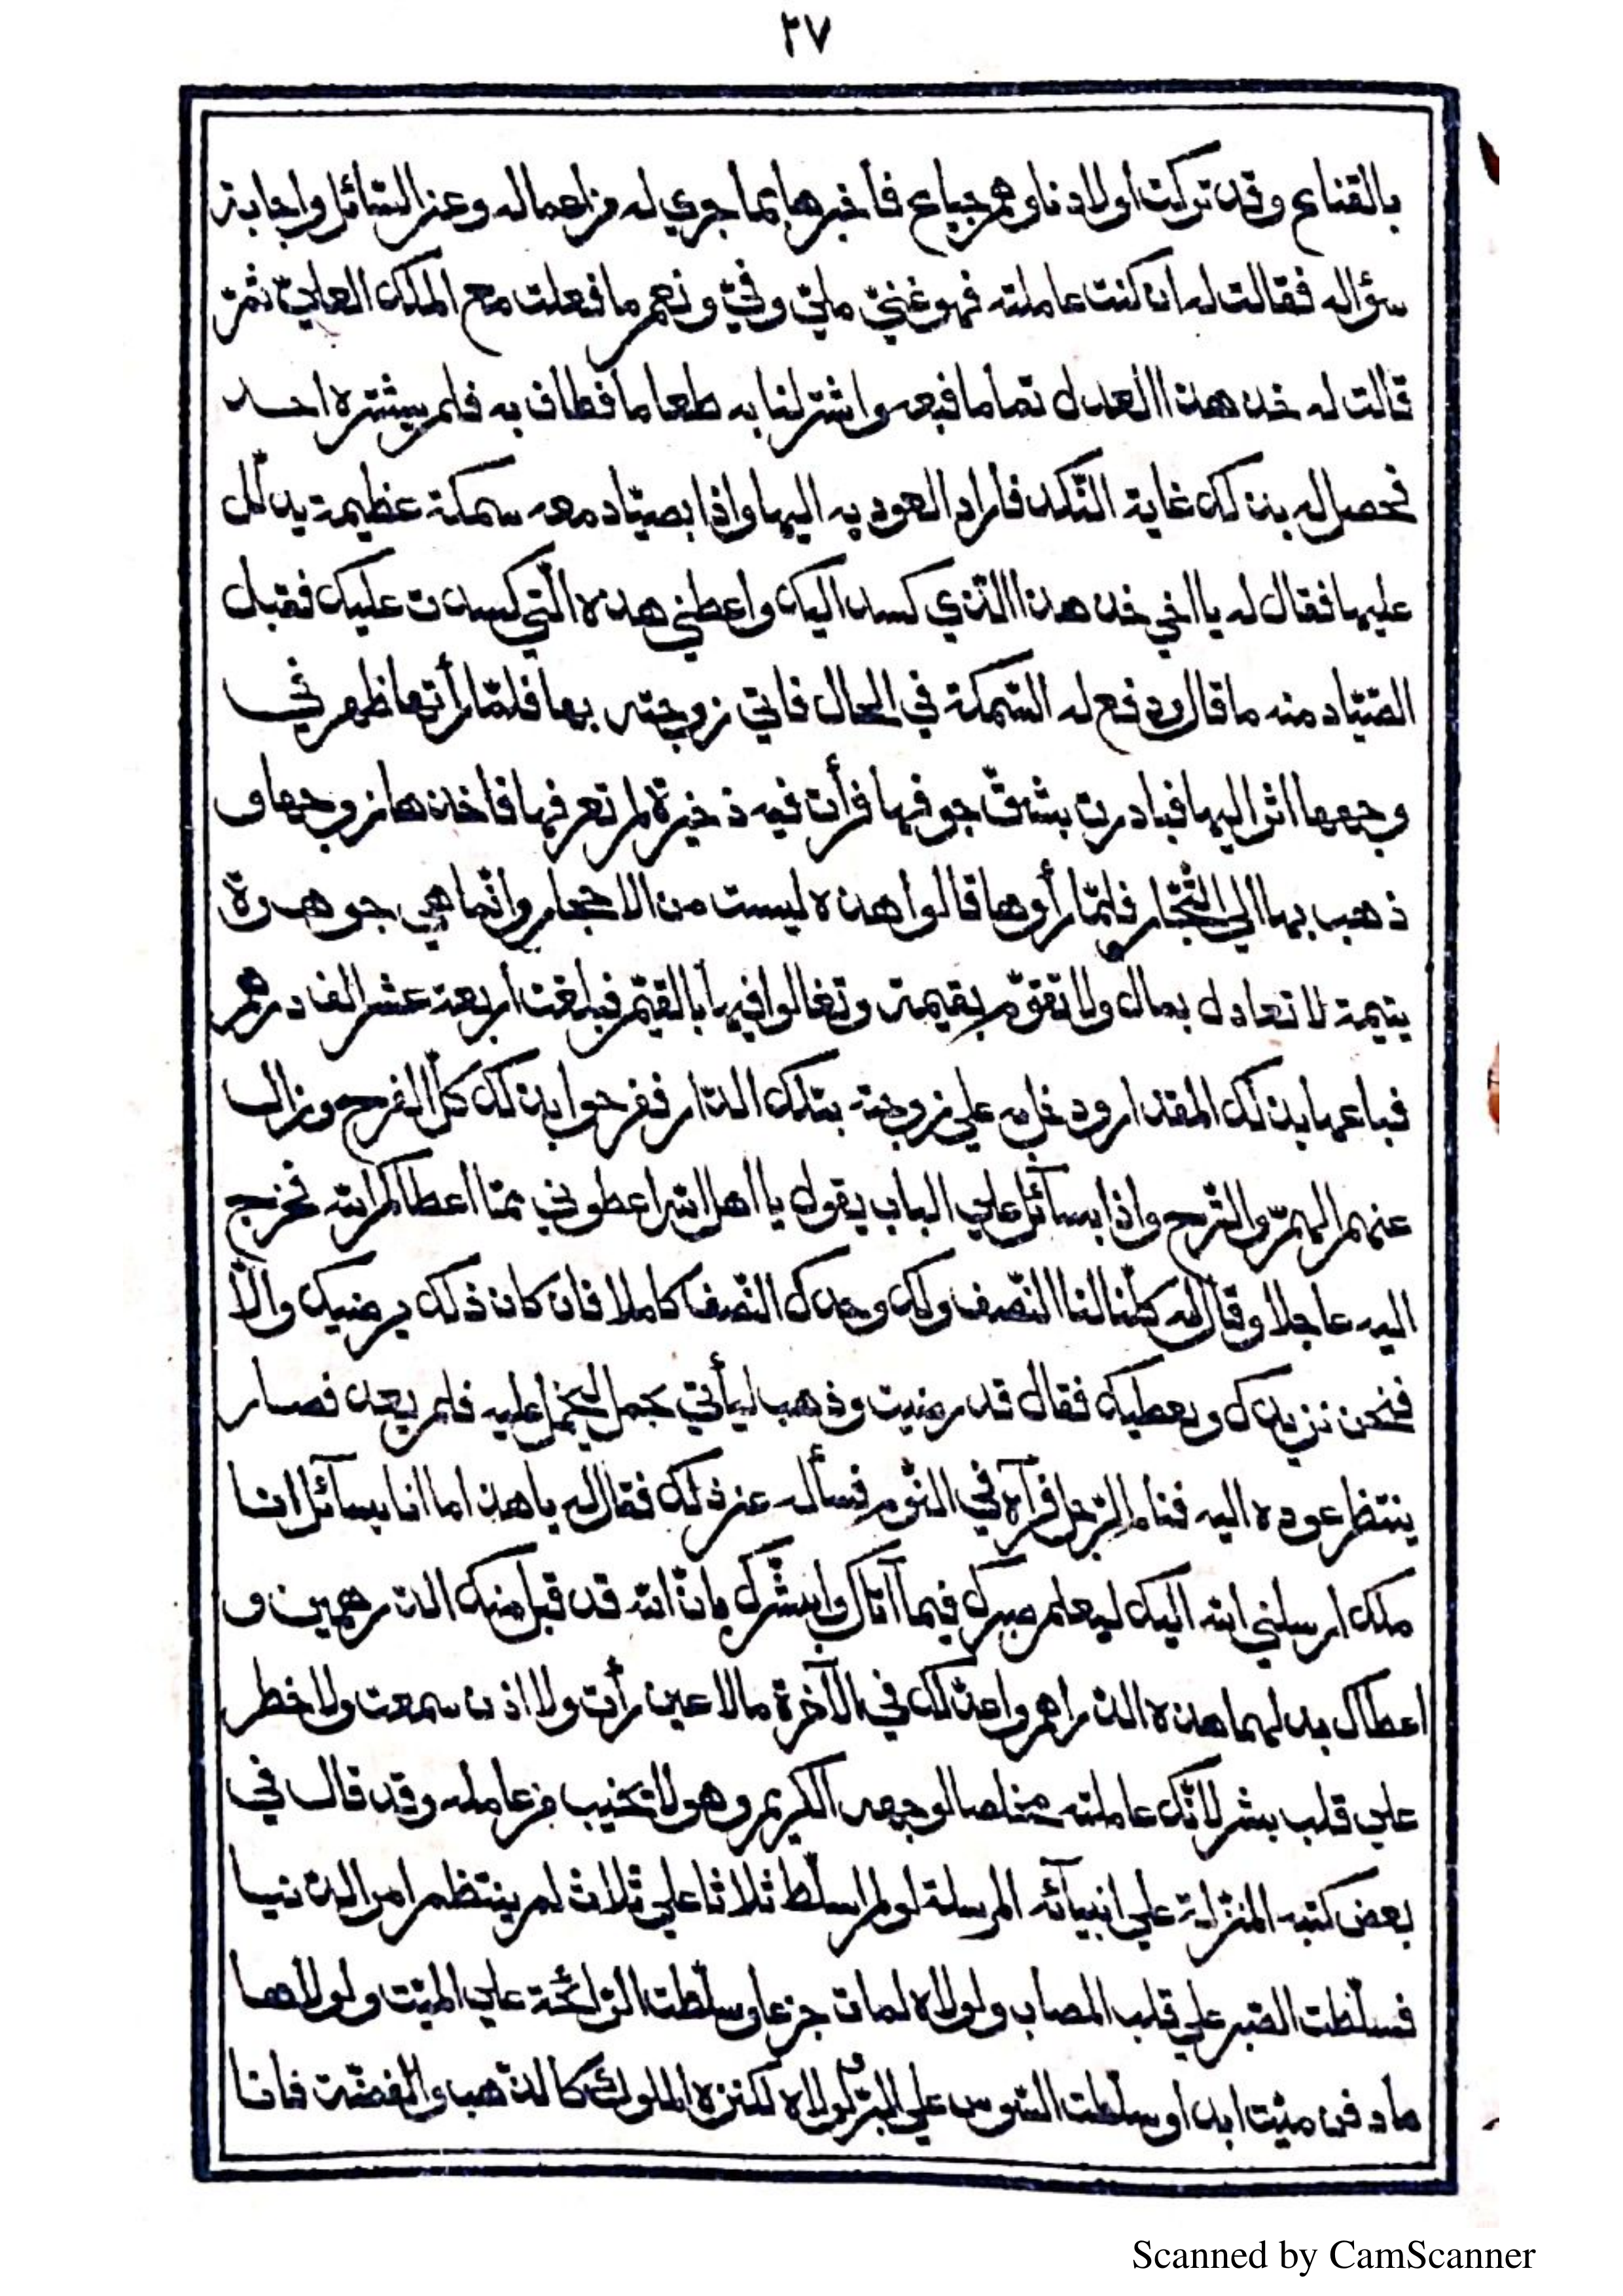 ٢٧
بالقناع وقد تركت أولادنا وهم جياع فأخبرها بما جري له من اعماله وعن السّائل واجابة
سؤاله فقالت له ان كنت عاملته فهو غنيّ مليّ وفيّ ونعم ما فعلت مع الملك العليّ ثمّ
قالت له خذ هذا العدل تماما فبعه واشتر لنا به طعاما فطاف به فلم يشتره احد
فحصل له بذلك غاية النّكد فأراد العود به اليها واذا بصيّاد معه سمكة عظيمة يدلّل
عليها فقال له يا اخي خذ هذا الّذي كسد اليك واعطني هذه الّتي كسدت عليك فقبل
الصّيّاد منه ما قال ودفع له السّمكة في الحال فاتي زوجته بها فلمّا رأتها ظهر في
وجهها اثر اليها فبادرت بشقّ جوفها فرأت فيه ذخيرة لم تعرفها فاخذها زوجها و
ذهب بها الي التّجّار فلمّا رأوها قالوا هذه ليست من الاحجار وانّما هي جوهرة
يتيمة لا تعادل بمال ولا تقوّم بقيمة وتغالوا فيها بالقيم فبلغت أربعة عشر الف درهم
فباعها بذلك المقدار ودخل به علي زوجته بتلك الدّار ففرحوا بذلك كلّ الفرح وزال
عنهم الهمّ والتّرح واذا بسآئل علي الباب يقول يا اهل الله اعطوني ممّا اعطاكم الله فخرج
اليه عاجلا وقال له كلّنا لنا النّصف ولك وحدك النّصف كاملا فان كان ذلك يرضيك والّا
فنحن نزيدك ونعطيك فقال قد رضيت وذهب ليأتي بجمل ليحمل عليه فلم يعد فصار
ينتظر عوده اليه فنام الرّجل فرآه في النّوم فسأله عن ذلك فقال له يا هذا ما انا بسآئل انا
ملك ارسلني الله اليك ليعلم صبرك فيما آتاك وابشّرك بانّ الله قد قبل منك الدّرهمين و
اعطاك بدلهما هذه الدّراهم واعدّ لك في الآخرة ما لا عين رأت ولا اذن سمعت ولا خطر
علي قلب بشر لانّك عاملته مخلصا لوجهه الكريم وهو لا يخيب من عامله وقد قال في
بعض كتبه المنزّلة علي انبيآئه المرسلة لو لم اسلّط ثلاثا علي ثلاث لم ينتظم امر الدّنيا
فسلّطت الصّبر علي قلب المصاب ولولاه لمات جزعا وسلّطت الرّائحة علي الميّت ولولاها
ما دفن ميّت ابدا وسلّطت السّوس علي البرّ ولولاه لكنزه الملوك كالذّهب والفضّة فانا
Scanned by CamScanner